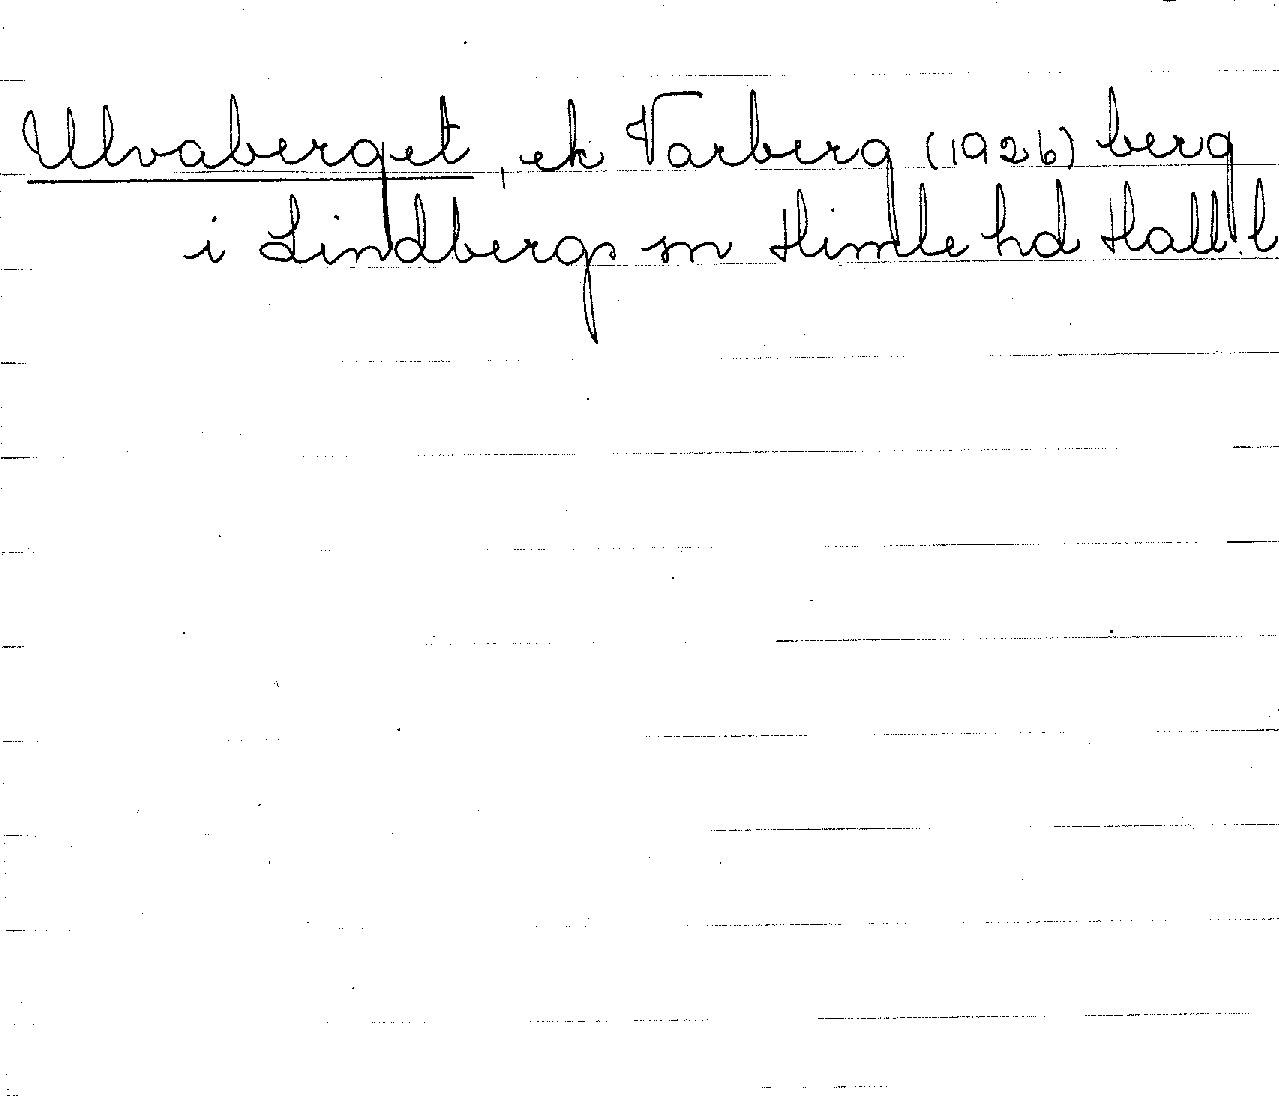 Ulvaberget, ek Varberg (1926) berg
i Lindbergs sn Himle hd Hall. l